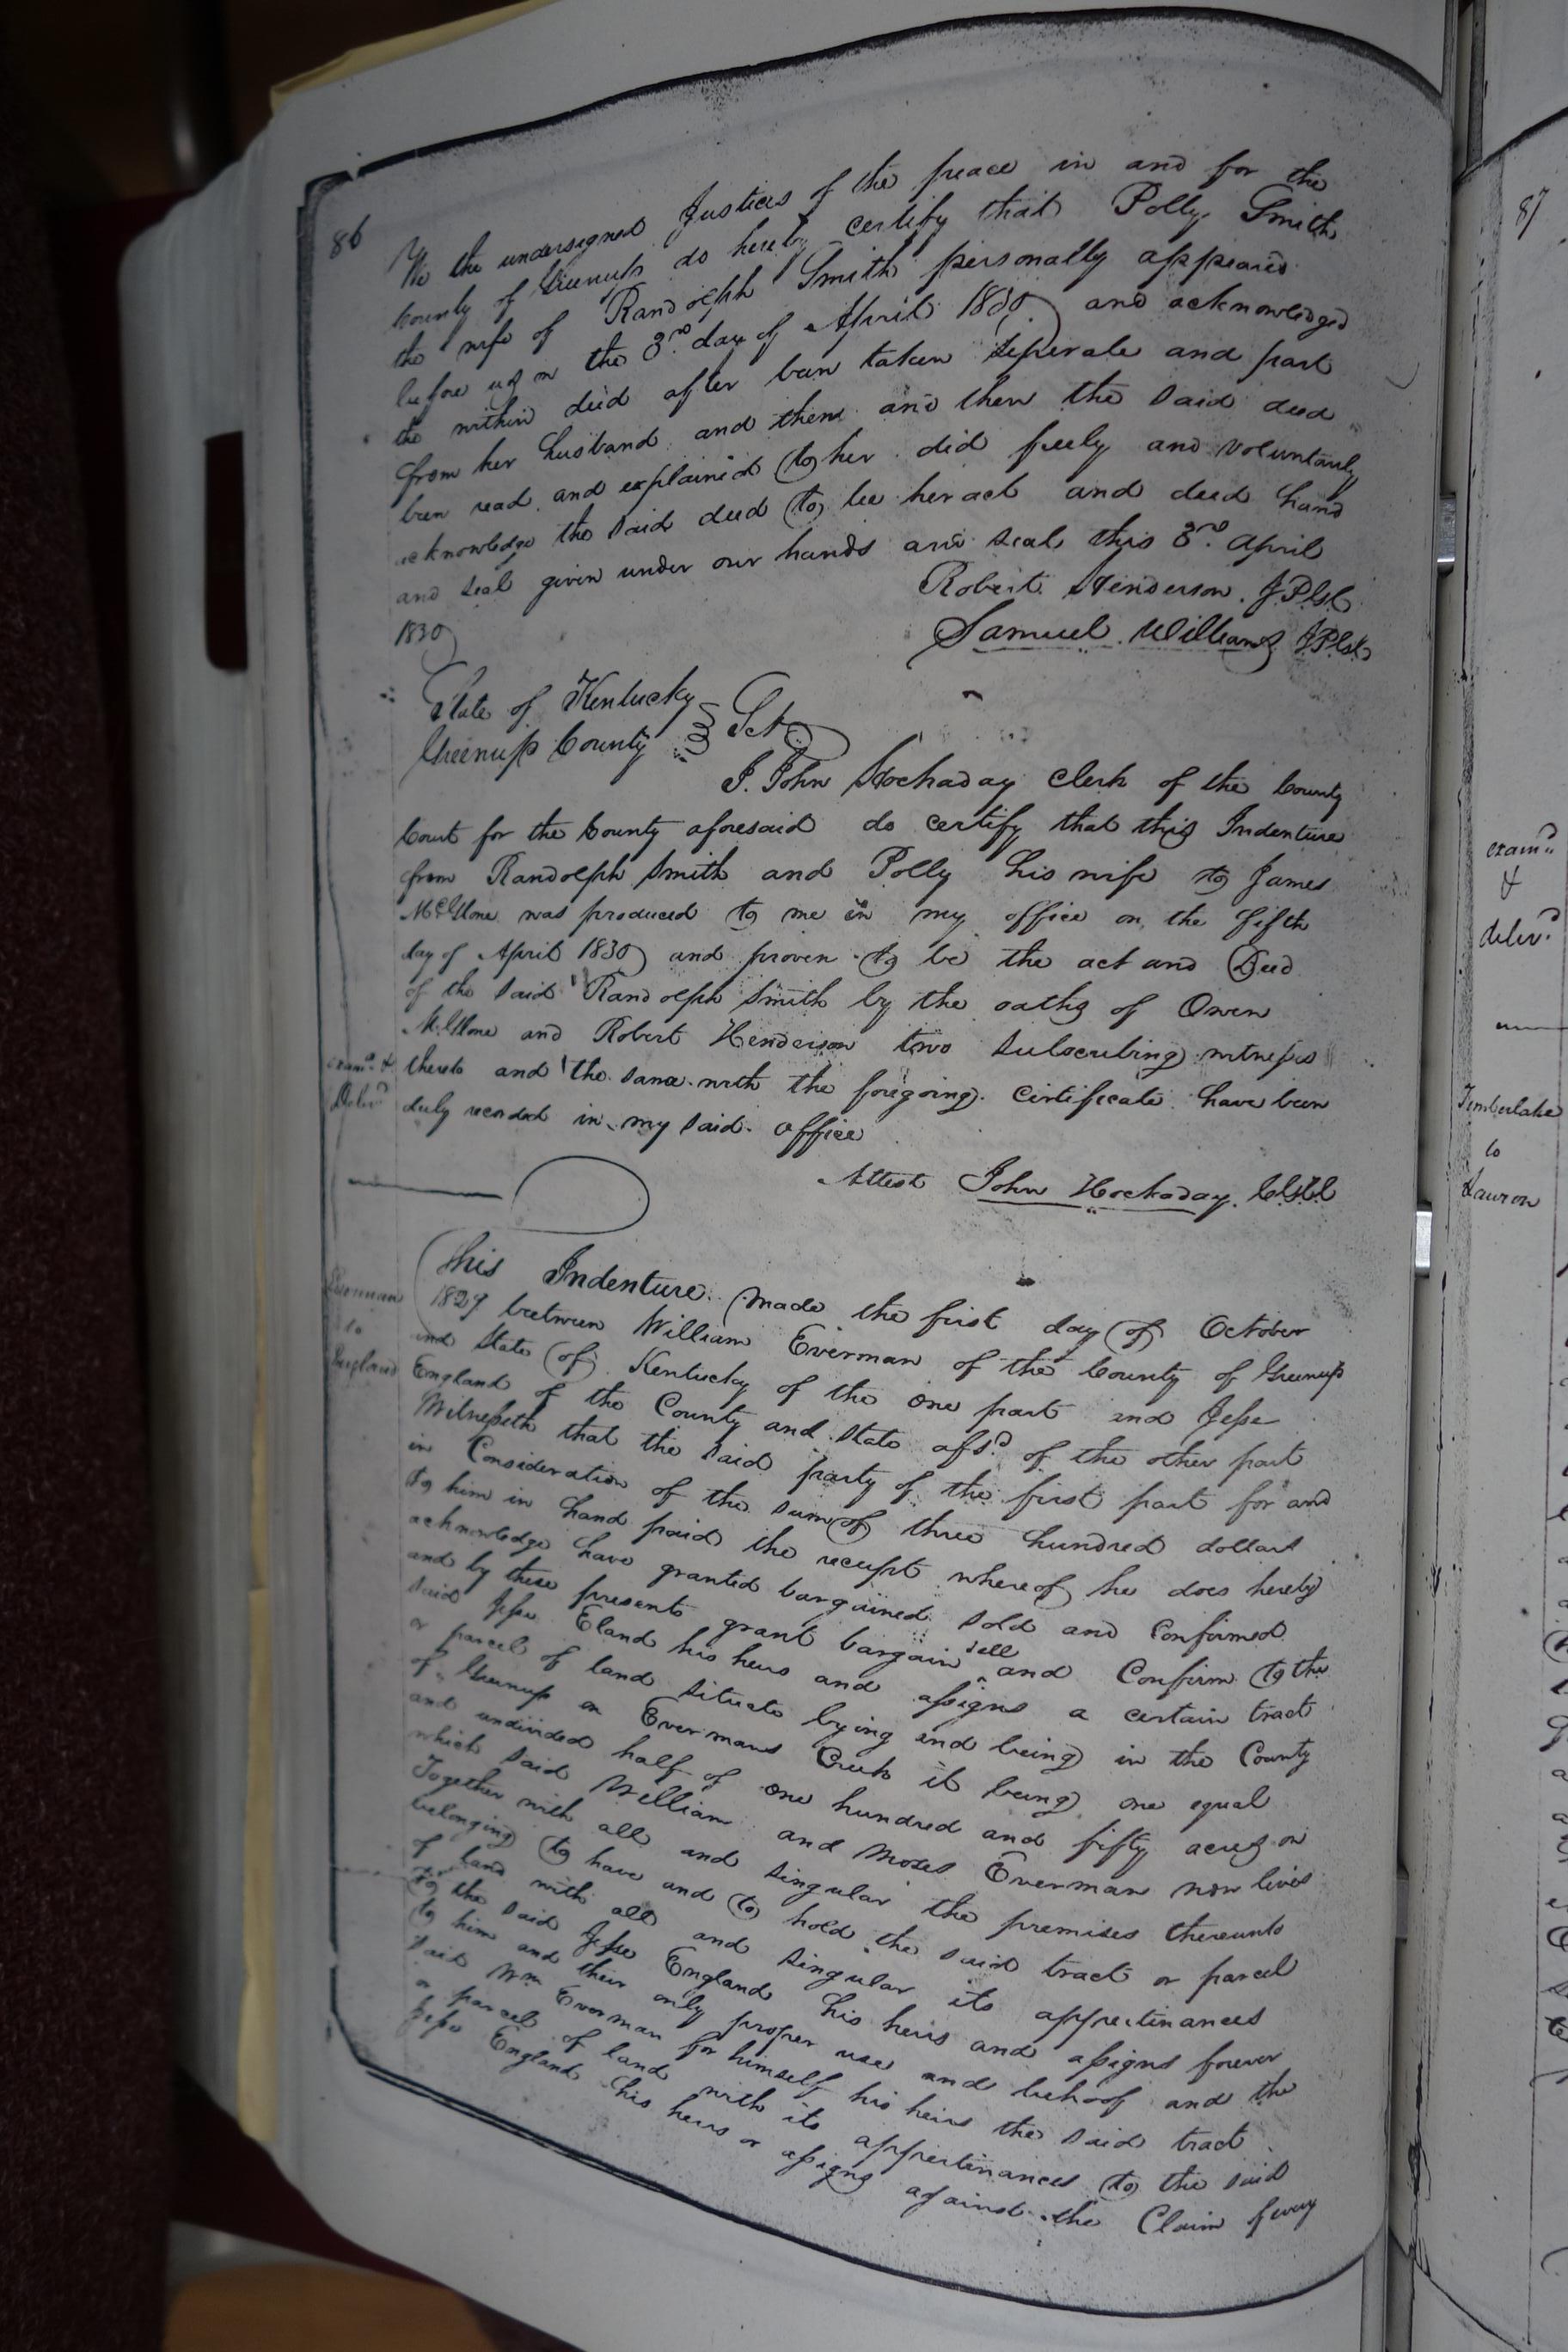 86
We the undersigned Justices of the peace in and for the
County of Greenup do hereby certify that Polly Smith
the wife of Randolph Smith personally appeared
before us on the 3rd day of April 1830 and acknowledged
the within deed after ben taken seperate and part
from her husband and them and then the said deed
ben read and explained to her did freely and voluntarily
acknowledge the said deed to be her act and deed hand
and seal given under our hands and seal this 3rd April
1830
Robert Henderson JP
Samuel Williams JP
State of Kentucky
Greenup County Sct
I John Hockaday Clerk of the County
Court for the County aforesaid do certify that this Indenture
from Randolph Smith and Polly his wife to James
McGlone was produced to me in my office on the fifth
day of April 1830 and proven to be the act and Deed
of the said Randolph Smith by the oaths of Owen
McGlone and Robert Henderson two subscribing witnesses
thereto and the same with the foregoing certificate have been
duly recorded in my said office
examd &
Delivd
Attest John Hockaday
Everman
to
England
This Indenture made the first day of October
1829 between William Everman of the County of Greenup
and State of Kentucky of the one part and Jesse
England of the County and State afsd of the other part
Witnesseth that the said party of the first part for and
in Consideration of the sum of three hundred dollars
to him in hand paid the receipt whereof he does hereby
acknowledge have granted bargained sold and Confirmed
and by these presents grant bargain sell and Confirm to the
said Jesse Eland his heirs and assigns a certain tract
or parcel of land situate lying and being in the County
of Greenup on Evermans Creek it being one equal
and undivided half of one hundred and fifty acres on
which said William and Moses Everman now lives
Together with all and singular the premises thereunto
belonging to have and to hold the said tract or parcel
of land with all and singular its appertinances
to the said Jesse England his heirs and assigns forever
to him and their only proper use and behoof and the
said Wm Everman for himself his heirs the said tract
or parcel of land with its appertinances to the said
Jesse England his heirs or assigns against the Claim
87
examd
&
delivd
Timberlake
to